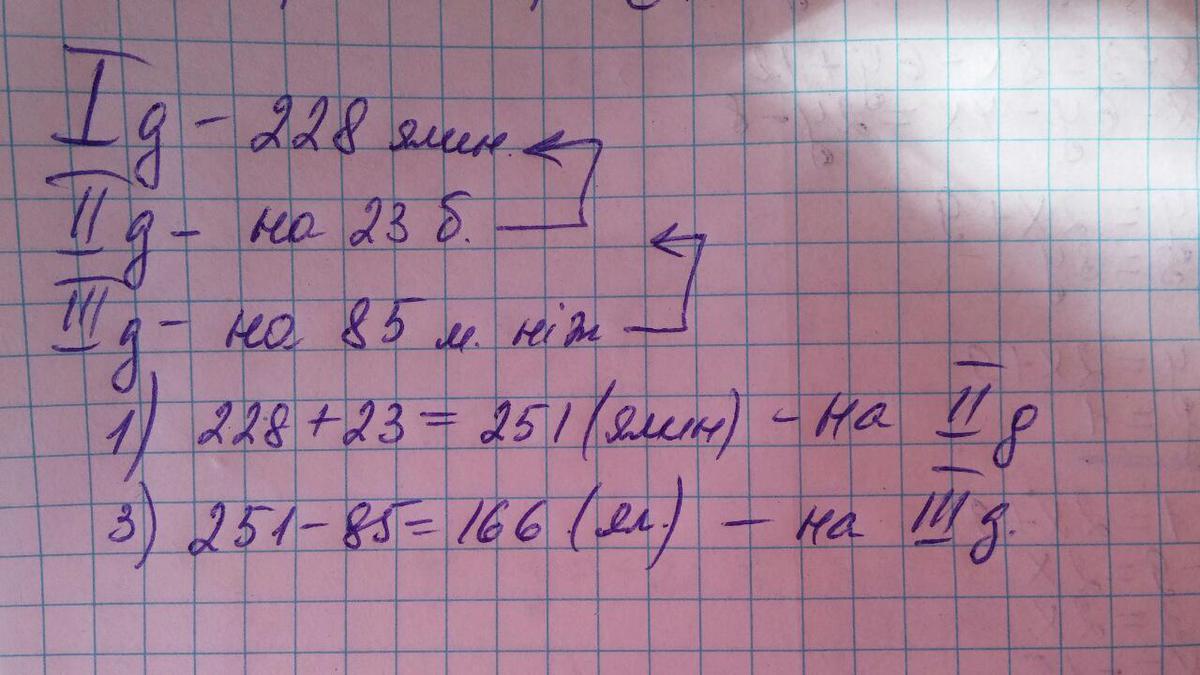 I д - 228 ялин.
II д - на 23 б.
III д - на 85 м. ніж
1) 228 + 23 = 251 (ялин) - на II д
3) 251 - 85 = 166 (ял.) - на III д.